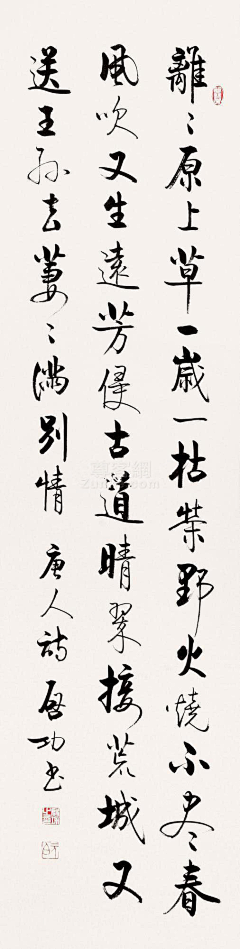 離〻原上草一歲一枯榮野火燒不尽春
風吹又生遠芳侵古道晴翠接荒城又
送王孫去萋〻滿別情 唐人詩 啓功書